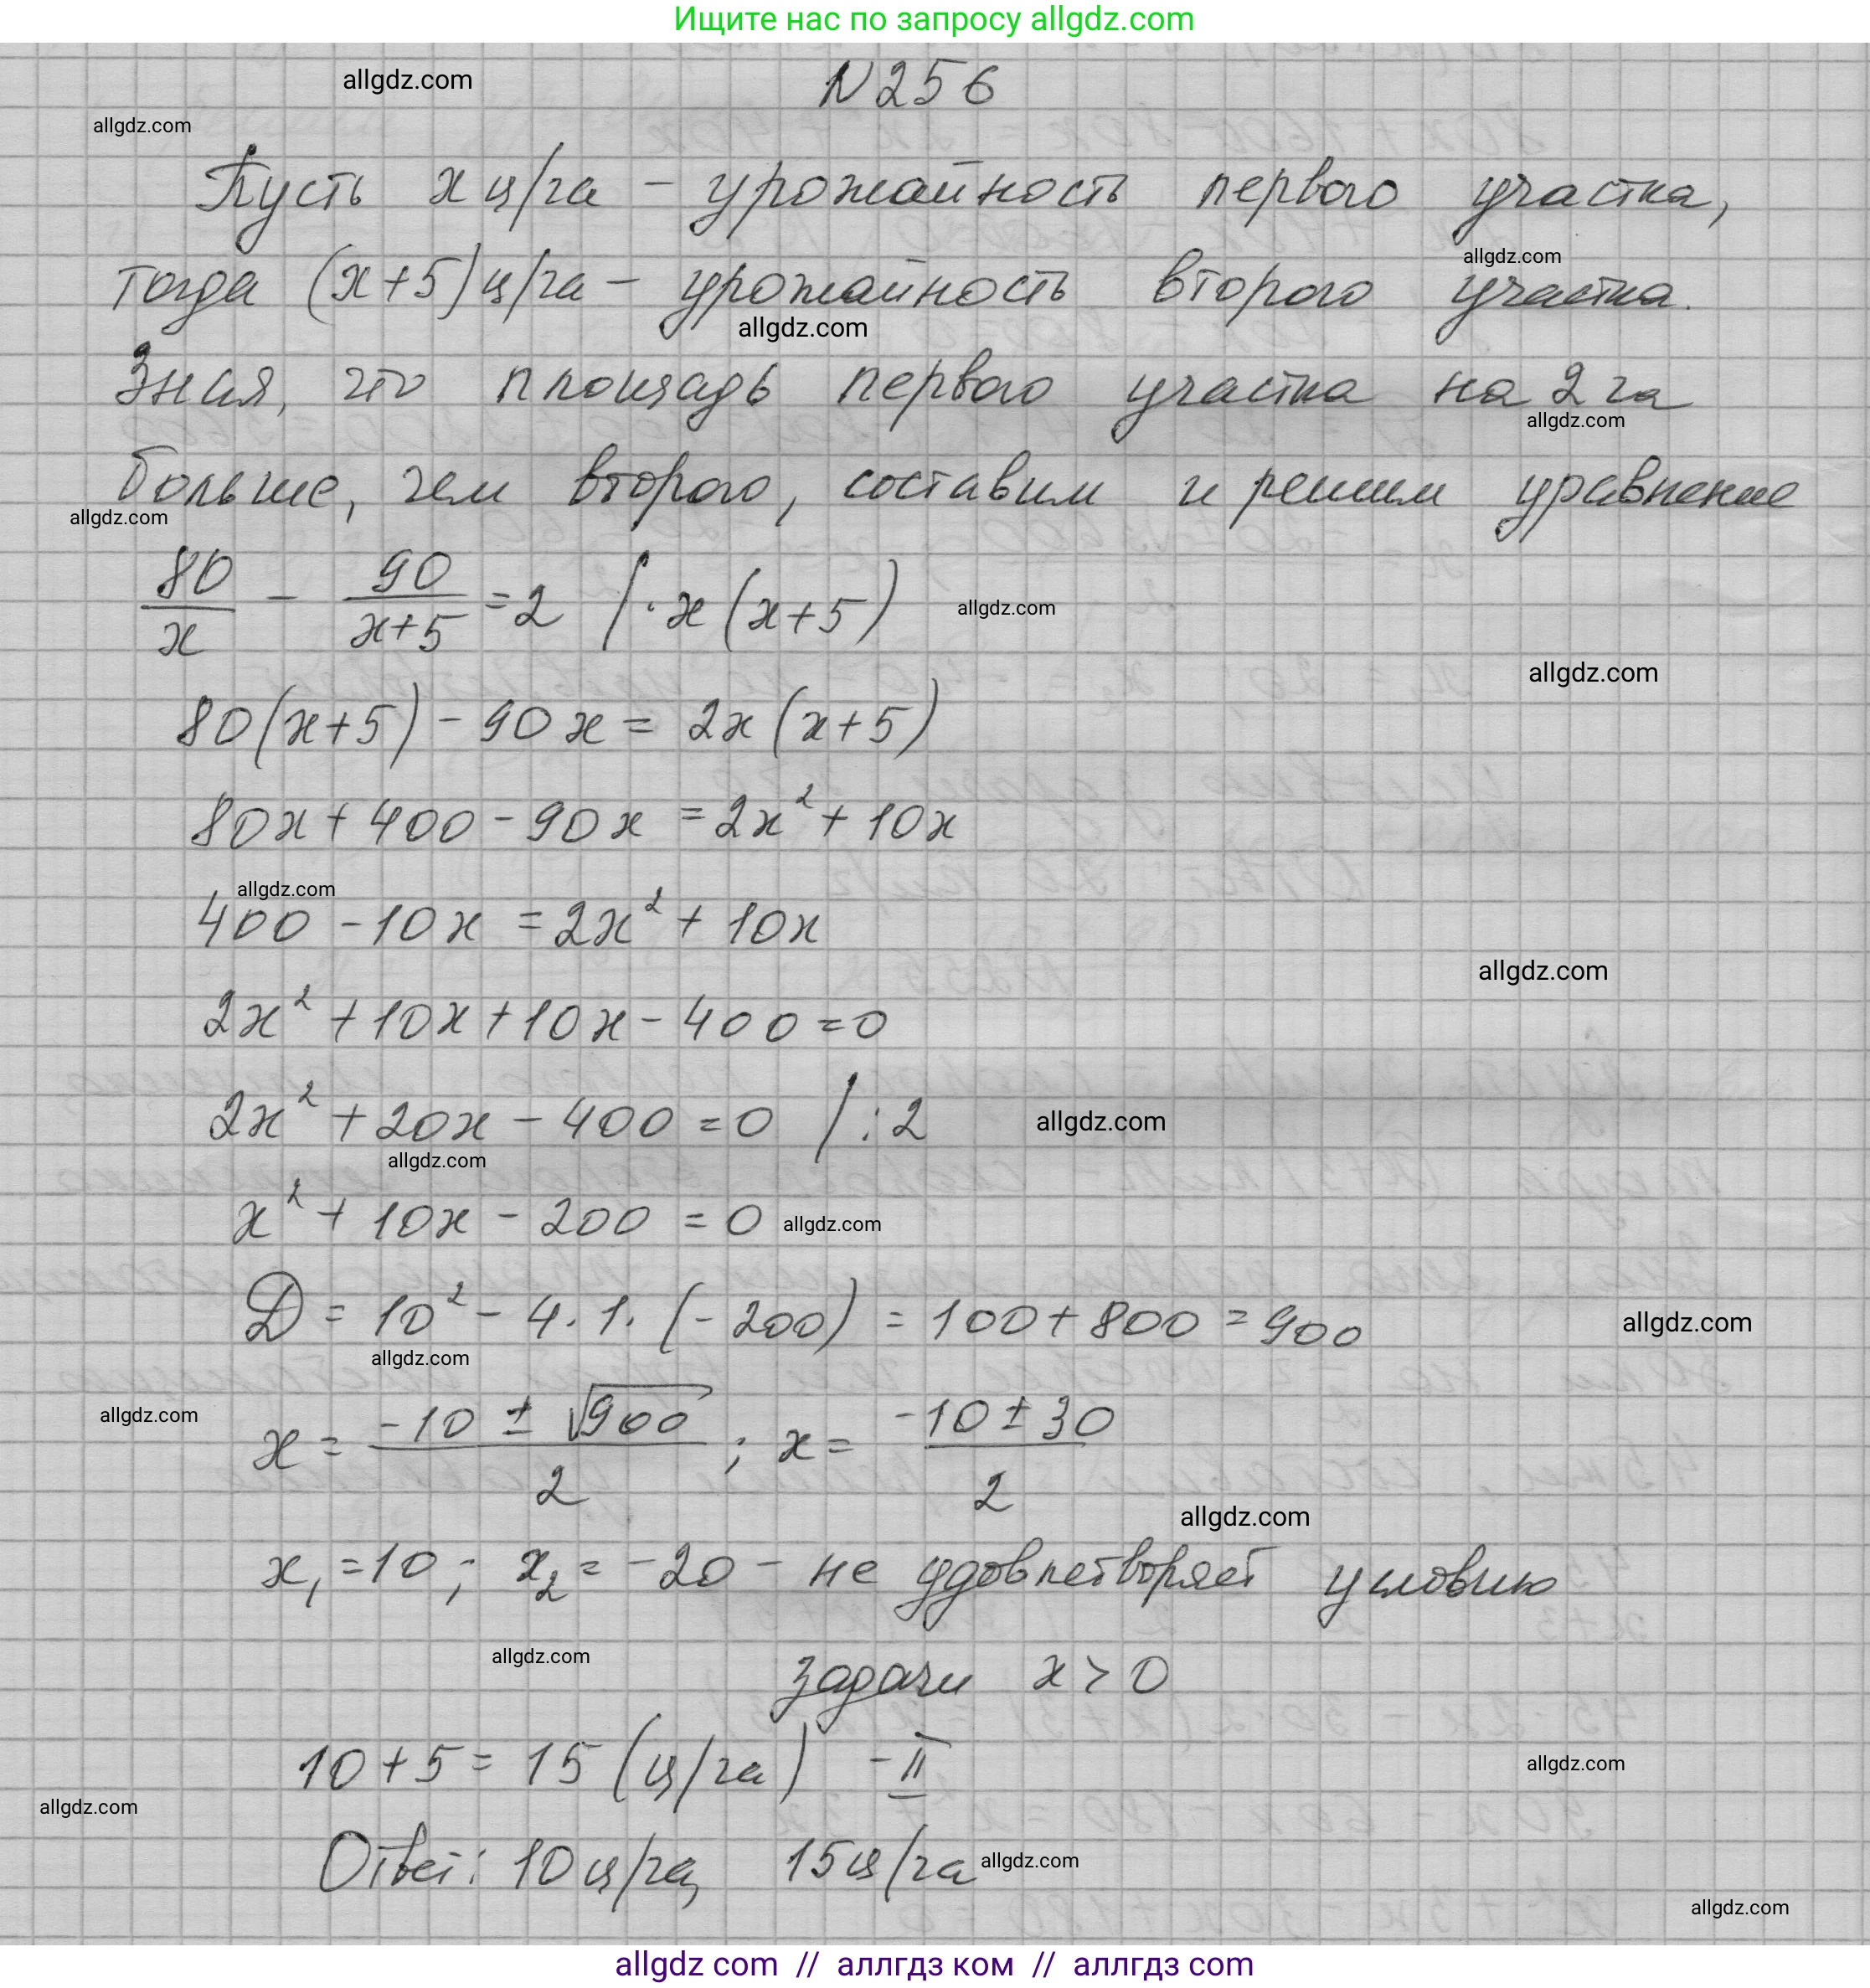 Ищите нас по запросу allgdz.com
allgdz.com
N 256
allgdz.com
Пусть x ц/га - урожайность первого участка,
тогда (x+5) ц/га - урожайность второго участка.
allgdz.com
allgdz.com
Зная, что площадь первого участка на 2 га
allgdz.com
больше, чем второго, составим и решим уравнение
allgdz.com
80/x - 90/(x+5) = 2 / · x (x+5)
allgdz.com
allgdz.com
80(x+5) - 90x = 2x (x+5)
80x + 400 - 90x = 2x² + 10x
allgdz.com
400 - 10x = 2x² + 10x
allgdz.com
2x² + 10x + 10x - 400 = 0
2x² + 20x - 400 = 0 / : 2
allgdz.com
allgdz.com
x² + 10x - 200 = 0
allgdz.com
D = 10² - 4 · 1 · (-200) = 100 + 800 = 900
allgdz.com
allgdz.com
allgdz.com
x = (-10 ± √900)/2 ; x = (-10 ± 30)/2
allgdz.com
x₁ = 10 ; x₂ = -20 - не удовлетворяет условию
allgdz.com
задачи x > 0
10 + 5 = 15 (ц/га) - II
allgdz.com
allgdz.com
Ответ: 10 ц/га, 15 ц/га
allgdz.com
allgdz.com
allgdz com // аллгдз ком // аллгдз com